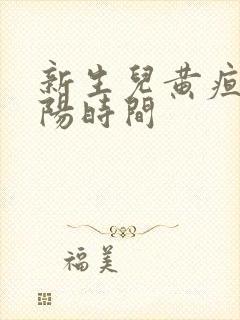 新生兒黃疸
陽時間
福美